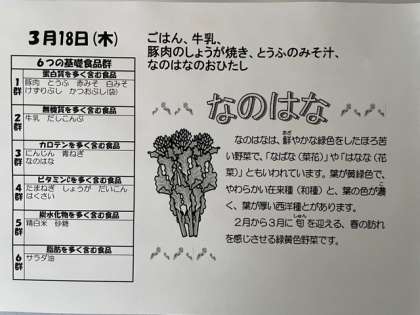 3月18日(木)
ごはん、牛乳、
豚肉のしょうが焼き、とうふのみそ汁、
なのはなのおひたし
6つの基礎食品群
蛋白質を多く含む食品
1群
豚肉 とうふ 赤みそ 白みそ
けずりぶし かつおぶし(袋)
無機質を多く含む食品
2群
牛乳 だしこんぶ
カロテンを多く含む食品
3群
にんじん 青ねぎ
なのはな
ビタミンCを多く含む食品
4群
たまねぎ しょうが だいこん
はくさい
炭水化物を多く含む食品
5群
精白米 砂糖
脂肪を多く含む食品
6群
サラダ油
なのはな
なのはなは、鮮やかな緑色をしたほろ苦
い野菜で、「なばな(菜花)」や「はなな(花
菜)」ともいわれています。葉が黄緑色で、
やわらかい在来種(和種)と、葉の色が濃
く、葉が厚い西洋種とがあります。
2月から3月に旬を迎える、春の訪れ
を感じさせる緑黄色野菜です。